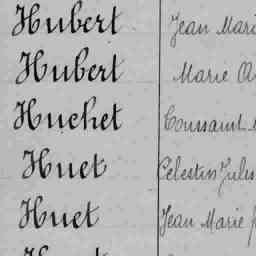 Hubert Jean Mari
Hubert Marie A
Huchet Toussaint
Huet Célestin Jules
Huet Jean Marie